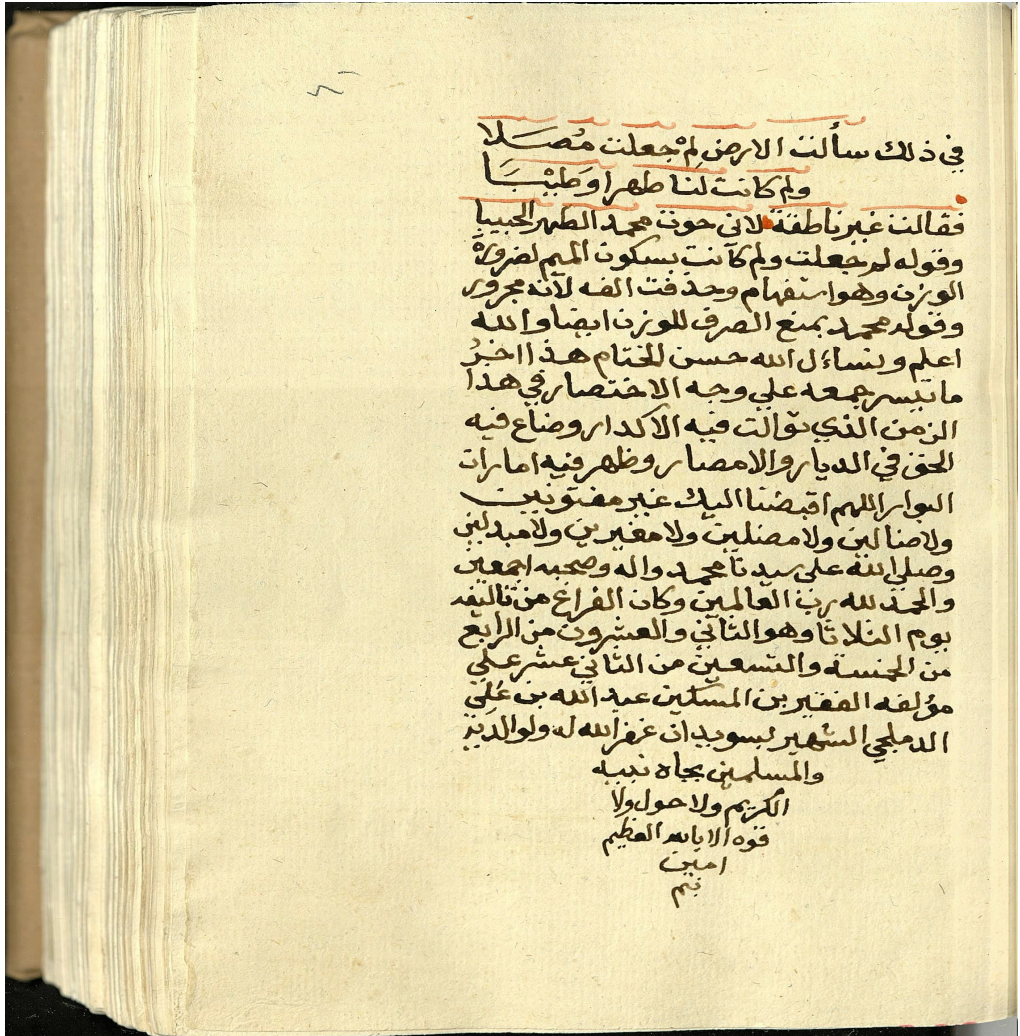 في ذلك سألت الارض لِمْ جعلت مُصَلا
ولم كانت لنا طهرا وَطِيْبَا
فقالت غير ناطقة لاني حويت محمد الطهر الحبيبا
وقوله لم جعلت ولم كانت بسكون الميم لضرورة
الوزن وهو استفهام وحذفت الفه لانه مجرور
وقوله محمد بمنع الصرف للوزن ايضا والله
اعلم ونساءل الله حسن الختام هذا اخرُ
ما تيسر جمعه علي وجه الاختصار في هذا
الزمن الذي توالت فيه الاكدار وضاع فيه
الحق في الديار والامصار وظهر فيه امارات
البوار اللهم اقبضنا اليك غير مفتونين
ولا ضالين ولا مضلين ولا مغيرين ولا مبدلين
وصلي الله علي سيدنا محمد واله وصحبه اجمعين
والحمد لله رب العالمين وكان الفراغ من تاليفه
يوم الثلاثا وهو الثاني والعشرون من الرابع
من الخمسة والتسعين من الثاني عشر علي
مؤلفه الفقير بن المسكين عبد الله بن عَلي
الدمليجي الشهير بسويدان غفر الله له ولوالديه
والمسلمين بجاه نبيه
الكريم ولا حول ولا
قوه الا بالله العظيم
امين
تم